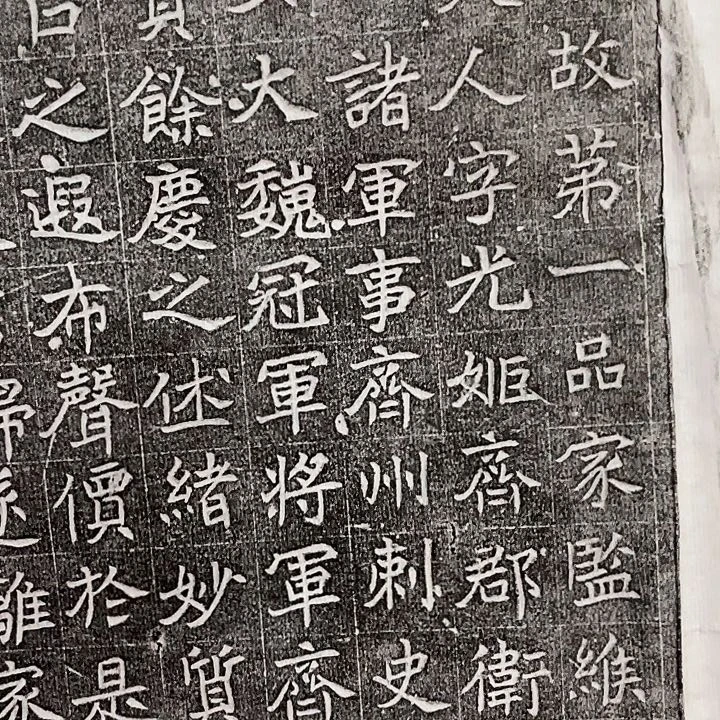 故苐一品家監維
人字光姬齊郡衛
諸軍事齊州刺史
大魏冠軍將軍齊
餘慶之休緒妙質
之遐布聲價於是
離家